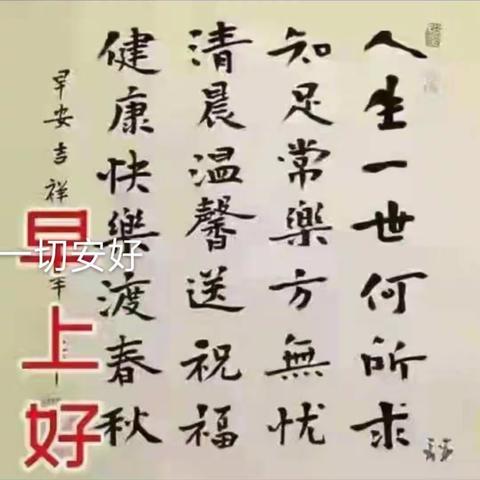 人生一世何所求
知足常樂方無忧
清晨温馨送祝福
健康快樂渡春秋
早安吉祥
早上好
一切安好